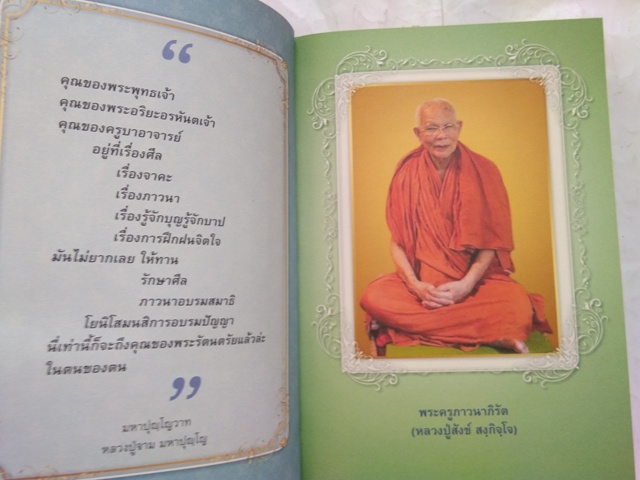 “
คุณของพระพุทธเจ้า
คุณของพระอริยะอรหันตเจ้า
คุณของครูบาอาจารย์
อยู่ที่เรื่องศีล
เรื่องจาคะ
เรื่องภาวนา
เรื่องรู้จักบุญรู้จักบาป
เรื่องการฝึกฝนจิตใจ
มันไม่ยากเลย ให้ทาน
รักษาศีล
ภาวนาอบรมสมาธิ
โยนิโสมนสิการอบรมปัญญา
นี่เท่านี้ก็จะถึงคุณของพระรัตนตรัยแล้วล่ะ
ในตนของตน
”
มหาปุญฺโญวาท
หลวงปู่จาม มหาปุญฺโญ
พระครูภาวนาภิรัต
(หลวงปู่สังข์ สงฺกิจฺโจ)